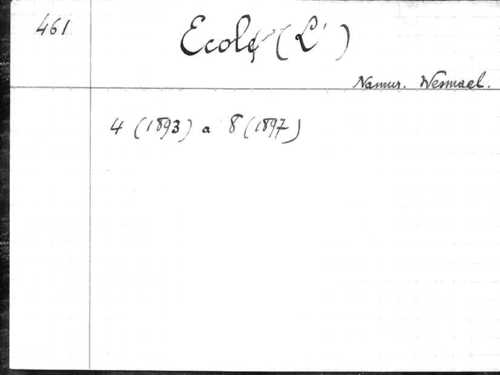 461
Ecole (L')
Namur. Wesmael.
4 (1893) a 8 (1897)